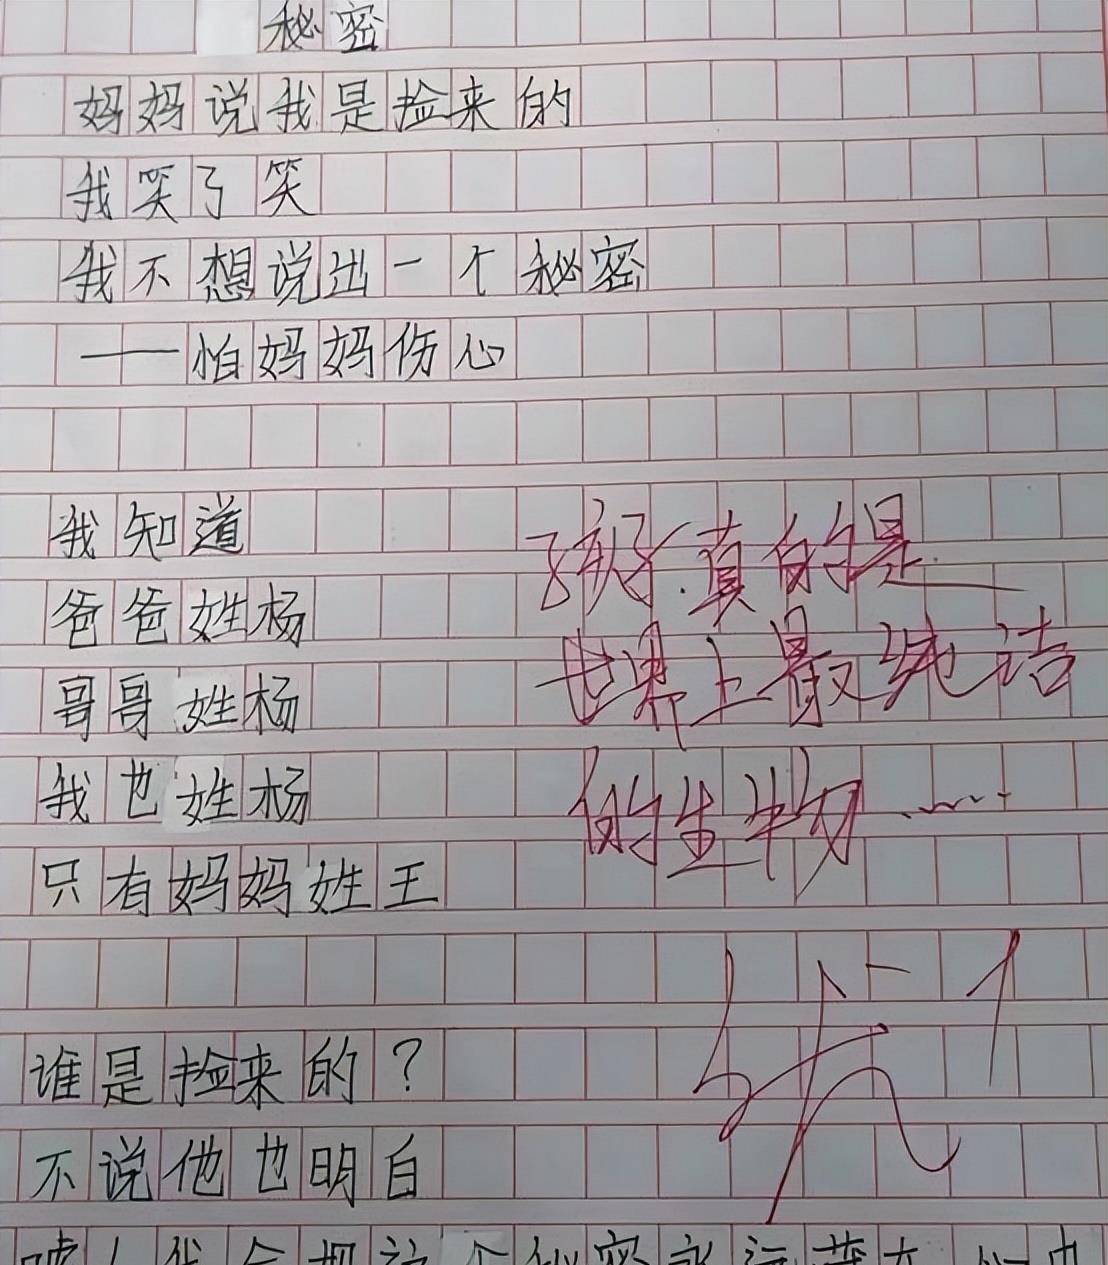 秘密
妈妈说我是捡来的
我笑了笑
我不想说出一个秘密
——怕妈妈伤心
我知道
爸爸姓杨
哥哥姓杨
我也姓杨
只有妈妈姓王
谁是捡来的？
不说他也明白
嘘！我会把这个秘密永远藏在心中
孩子真的是
世界上最纯洁
的生物……
优